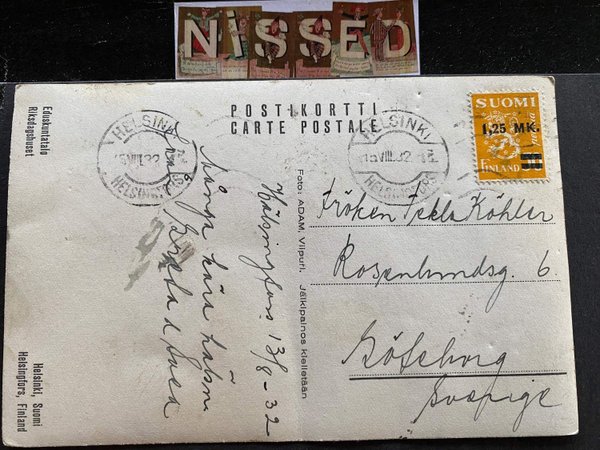 NiSSED
POSTIKORTTI
CARTE POSTALE
HELSINKI
15.VIII.32
HELSINGFORS
HELSINKI
15.VIII.32
HELSINGFORS
SUOMI
1,25 MK.
FINLAND
Eduskuntatalo
Riksdagshuset
Helsinki, Suomi
Helsingfors, Finland
Foto: ADAM, Viipuri. Jälkipainos kielletään
Hälsingfors 13/8-32
Många kära hälsn
Greta
Fröken Tekla Köhler
Rosenlundsg. 6.
Göteborg
Sverige